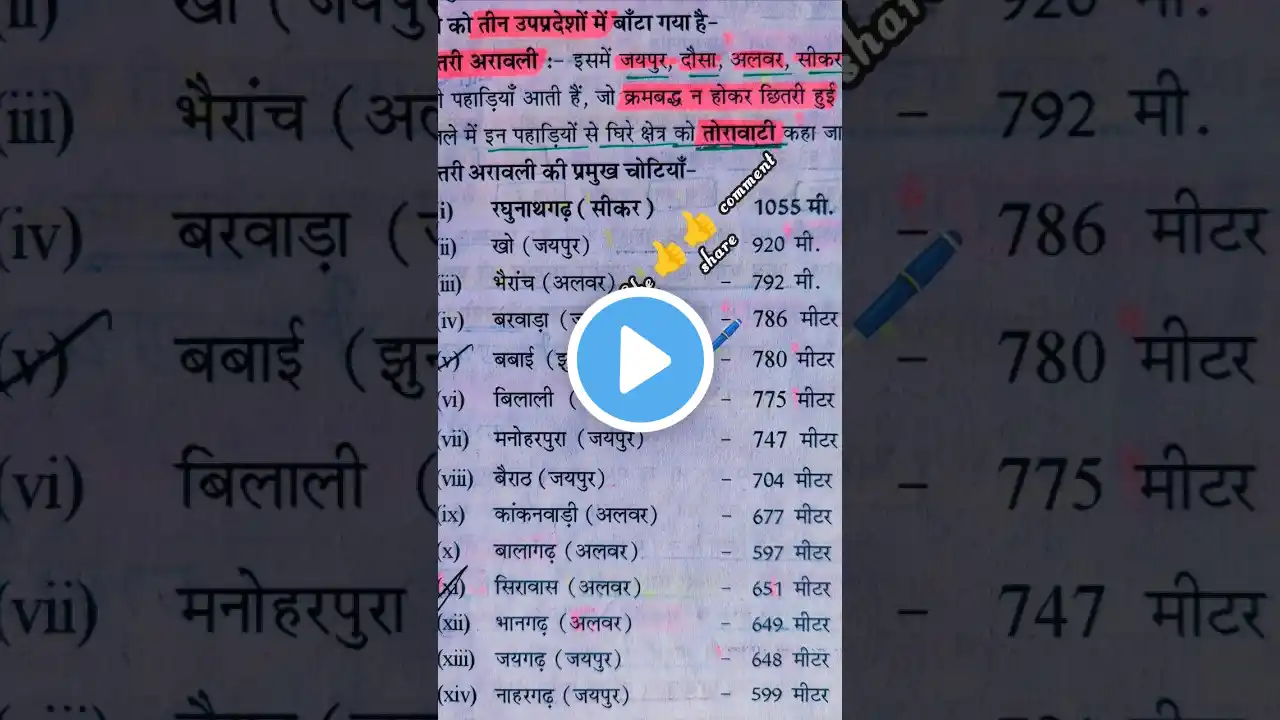 को तीन उपप्रदेशों में बाँटा गया है–
तरी अरावली :– इसमें जयपुर, दौसा, अलवर, सीकर
पहाड़ियाँ आती हैं, जो क्रमबद्ध न होकर छितरी हुई
में इन पहाड़ियों से घिरे क्षेत्र को तोरावाटी कहा जा
तरी अरावली की प्रमुख चोटियाँ–
i) रघुनाथगढ़ (सीकर) 1055 मी.
ii) खो (जयपुर) 920 मी.
iii) भैरांच (अलवर) – 792 मी.
(iv) बरवाड़ा – 786 मीटर
(v) बबाई – 780 मीटर
(vi) बिलाली ( – 775 मीटर
(vii) मनोहरपुरा (जयपुर) – 747 मीटर
(viii) बैराठ (जयपुर) – 704 मीटर
(ix) कांकनवाड़ी (अलवर) – 677 मीटर
(x) बालागढ़ (अलवर) – 597 मीटर
(xi) सिरावास (अलवर) – 651 मीटर
(xii) भानगढ़ (अलवर) – 649 मीटर
(xiii) जयगढ़ (जयपुर) – 648 मीटर
(xiv) नाहरगढ़ (जयपुर) – 599 मीटर
comment
share
share
iii) भैरांच – 792 मी.
(iv) बरवाड़ा ( – 786 मीटर
(v) बबाई – 780 मीटर
(vi) बिलाली ( – 775 मीटर
(vii) मनोहरपुरा – 747 मीटर